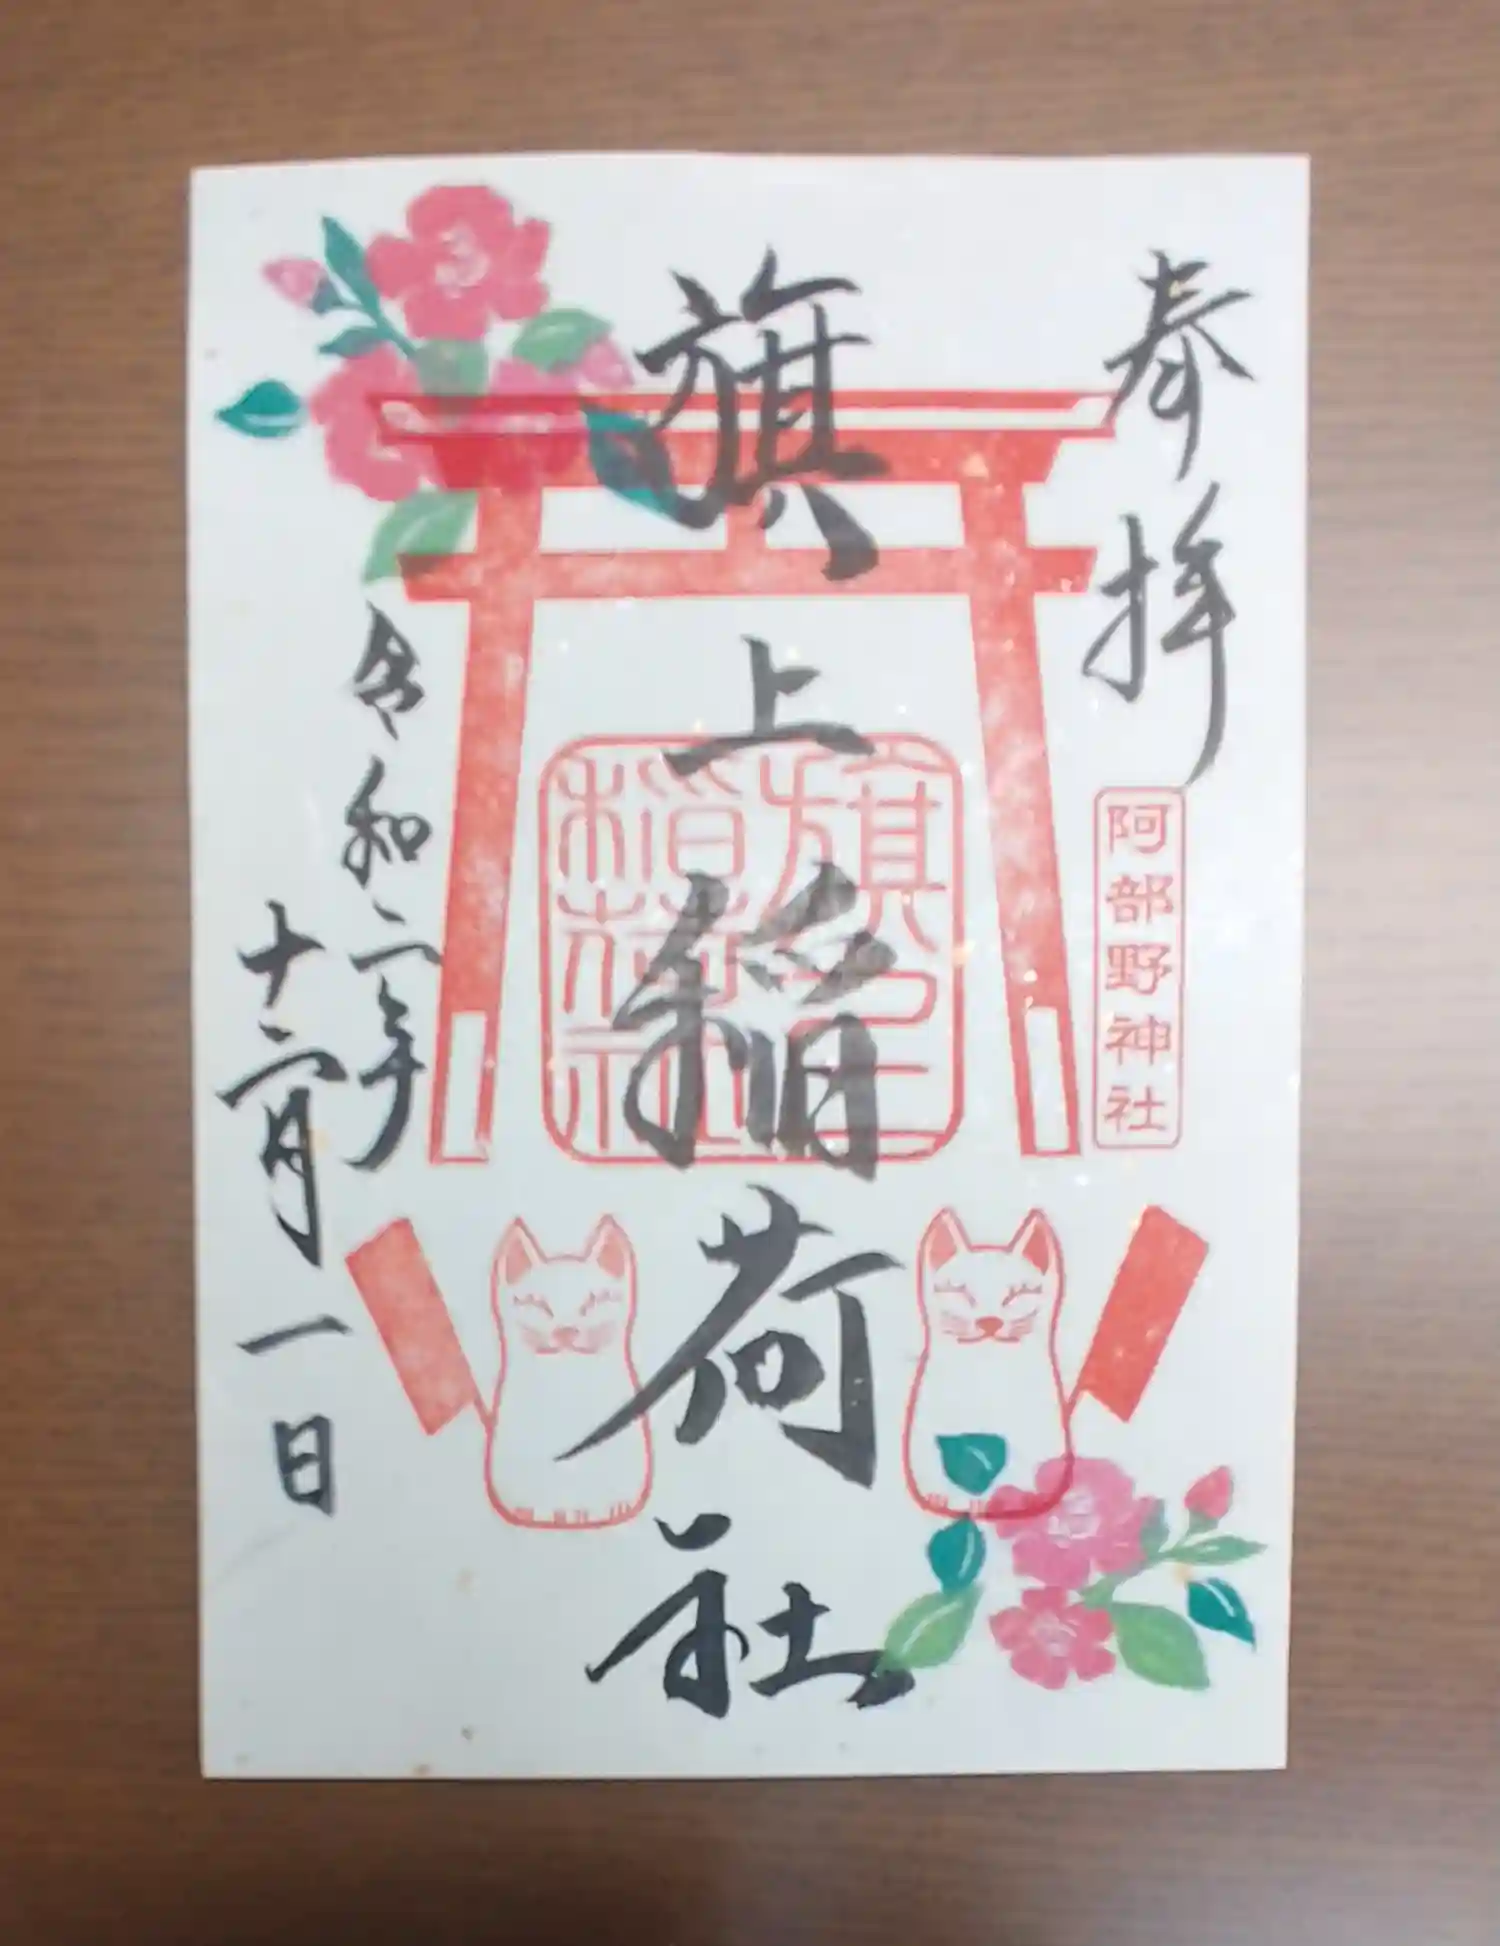 奉拝
阿部野神社
旗上稲荷社
旗上
稲荷社
令和二年
十二月一日